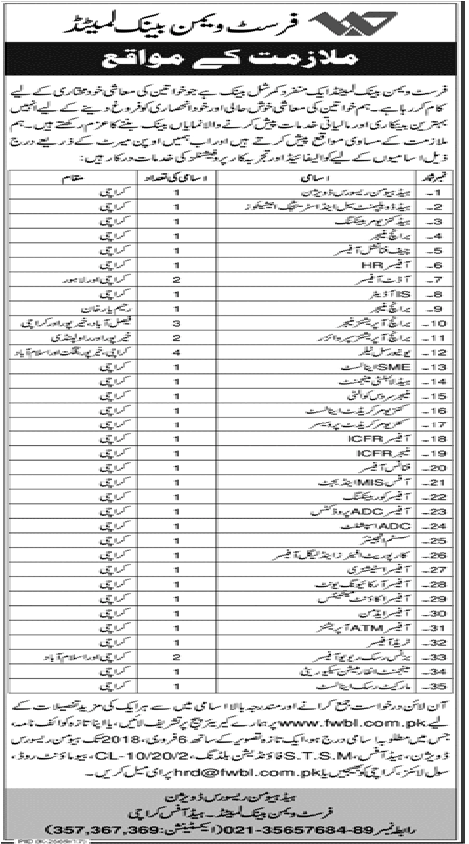 فرسٹ ویمن بینک لمیٹڈ
ملازمت کے مواقع
فرسٹ ویمن بینک لمیٹڈ ایک منفرد کمرشل بینک ہے جو خواتین کی معاشی خود مختاری کے لیے
کام کر رہا ہے۔ ہم خواتین کی معاشی خوش حالی اور خود انحصاری کو فروغ دینے کے لیے انہیں
بہترین بینکاری اور مالیاتی خدمات پیش کرنے والا نمایاں بینک بننے کا عزم رکھتے ہیں۔ ہم
ملازمت کے مساوی مواقع پیش کرتے ہیں اور اب ہمیں اوپن میرٹ کے ذریعے درج
ذیل اسامیوں کے لیے کوالیفائیڈ اور تجربہ کار پروفیشنلز کی خدمات درکار ہیں:
نمبر شمار اسامی اسامی کی تعداد مقام
1۔ ہیڈ ہیومن ریسورس ڈویژن 1 کراچی
2۔ ہیڈ ڈویلپمنٹ سیل اینڈ اسٹریٹیجک انیشیٹوز 1 کراچی
3۔ ہیڈ کنزیومر بینکنگ 1 کراچی
4۔ برانچ منیجر 1 کراچی
5۔ چیف فنانشل آفیسر 1 کراچی
6۔ آفیسر HR 1 کراچی
7۔ آڈٹ آفیسر 2 کراچی اور لاہور
8۔ IS آڈیٹر 1 کراچی
9۔ برانچ منیجر 1 رحیم یار خان
10۔ برانچ آپریشنز منیجر 3 فیصل آباد، خیرپور اور کراچی
11۔ برانچ آپریشنز سپروائزر 2 خیرپور اور راولپنڈی
12۔ یونیورسل ٹیلر 4 کراچی، خیرپور، گلگت اور اسلام آباد
13۔ SME اینالسٹ 1 کراچی
14۔ ہیڈ لائبلٹی منیجمنٹ 1 کراچی
15۔ منیجر سروس کوالٹی 1 کراچی
16۔ کنزیومر کریڈٹ اینالسٹ 1 کراچی
17۔ کنزیومر کریڈٹ پروسیسر 1 کراچی
18۔ آفیسر ICFR 1 کراچی
19۔ منیجر ICFR 1 کراچی
20۔ فنانس آفیسر 1 کراچی
21۔ آفس MIS اینڈ بجٹ 1 کراچی
22۔ آفیسر کور بینکنگ 1 کراچی
23۔ آفیسر ADC پروڈکٹس 1 کراچی
24۔ ADC اسپیشلسٹ 1 کراچی
25۔ سسٹم انجینئر 1 کراچی
26۔ کارپوریٹ افیئرز اینڈ لیگل آفیسر 1 کراچی
27۔ آفیسر اسٹیشنری 1 کراچی
28۔ آفیسر آرکائیونگ یونٹ 1 کراچی
29۔ آفیسر اکاؤنٹ مینٹیننس 1 کراچی
30۔ آفیسر ایڈمن 1 کراچی
31۔ آفیسر ATM آپریشنز 1 کراچی
32۔ ٹریڈ آفیسر 1 کراچی
33۔ بزنس رسک ریویو آفیسر 2 کراچی اور اسلام آباد
34۔ منیجمنٹ انفارمیشن سیکیورٹی 1 کراچی
35۔ مارکیٹ رسک اینالسٹ 1 کراچی
آن لائن درخواست جمع کرانے اور مندرجہ بالا اسامی میں سے ہر ایک کی مزید تفصیلات کے
لیے www.fwbl.com.pk پر ہمارے کیریئر پیج پر تشریف لائیں، یا اپنا تازہ کوائف نامہ،
جس میں مطلوبہ اسامی درج ہو، ایک تازہ تصویر کے ساتھ 6 فروری، 2018 تک ہیومن ریسورس
ڈویژن، ہیڈ آفس، S.T.S.M فاؤنڈیشن بلڈنگ، CL-10/20/2، بیوماؤنٹ روڈ،
سول لائنز، کراچی کو بھیجیں یا hrd@fwbl.com.pk پر ای میل کریں۔
ہیڈ ہیومن ریسورس ڈویژن
فرسٹ ویمن بینک لمیٹڈ۔ ہیڈ آفس کراچی
رابطہ نمبر 89-35657684-021 (ایکسٹینشنز: 357,367,369)